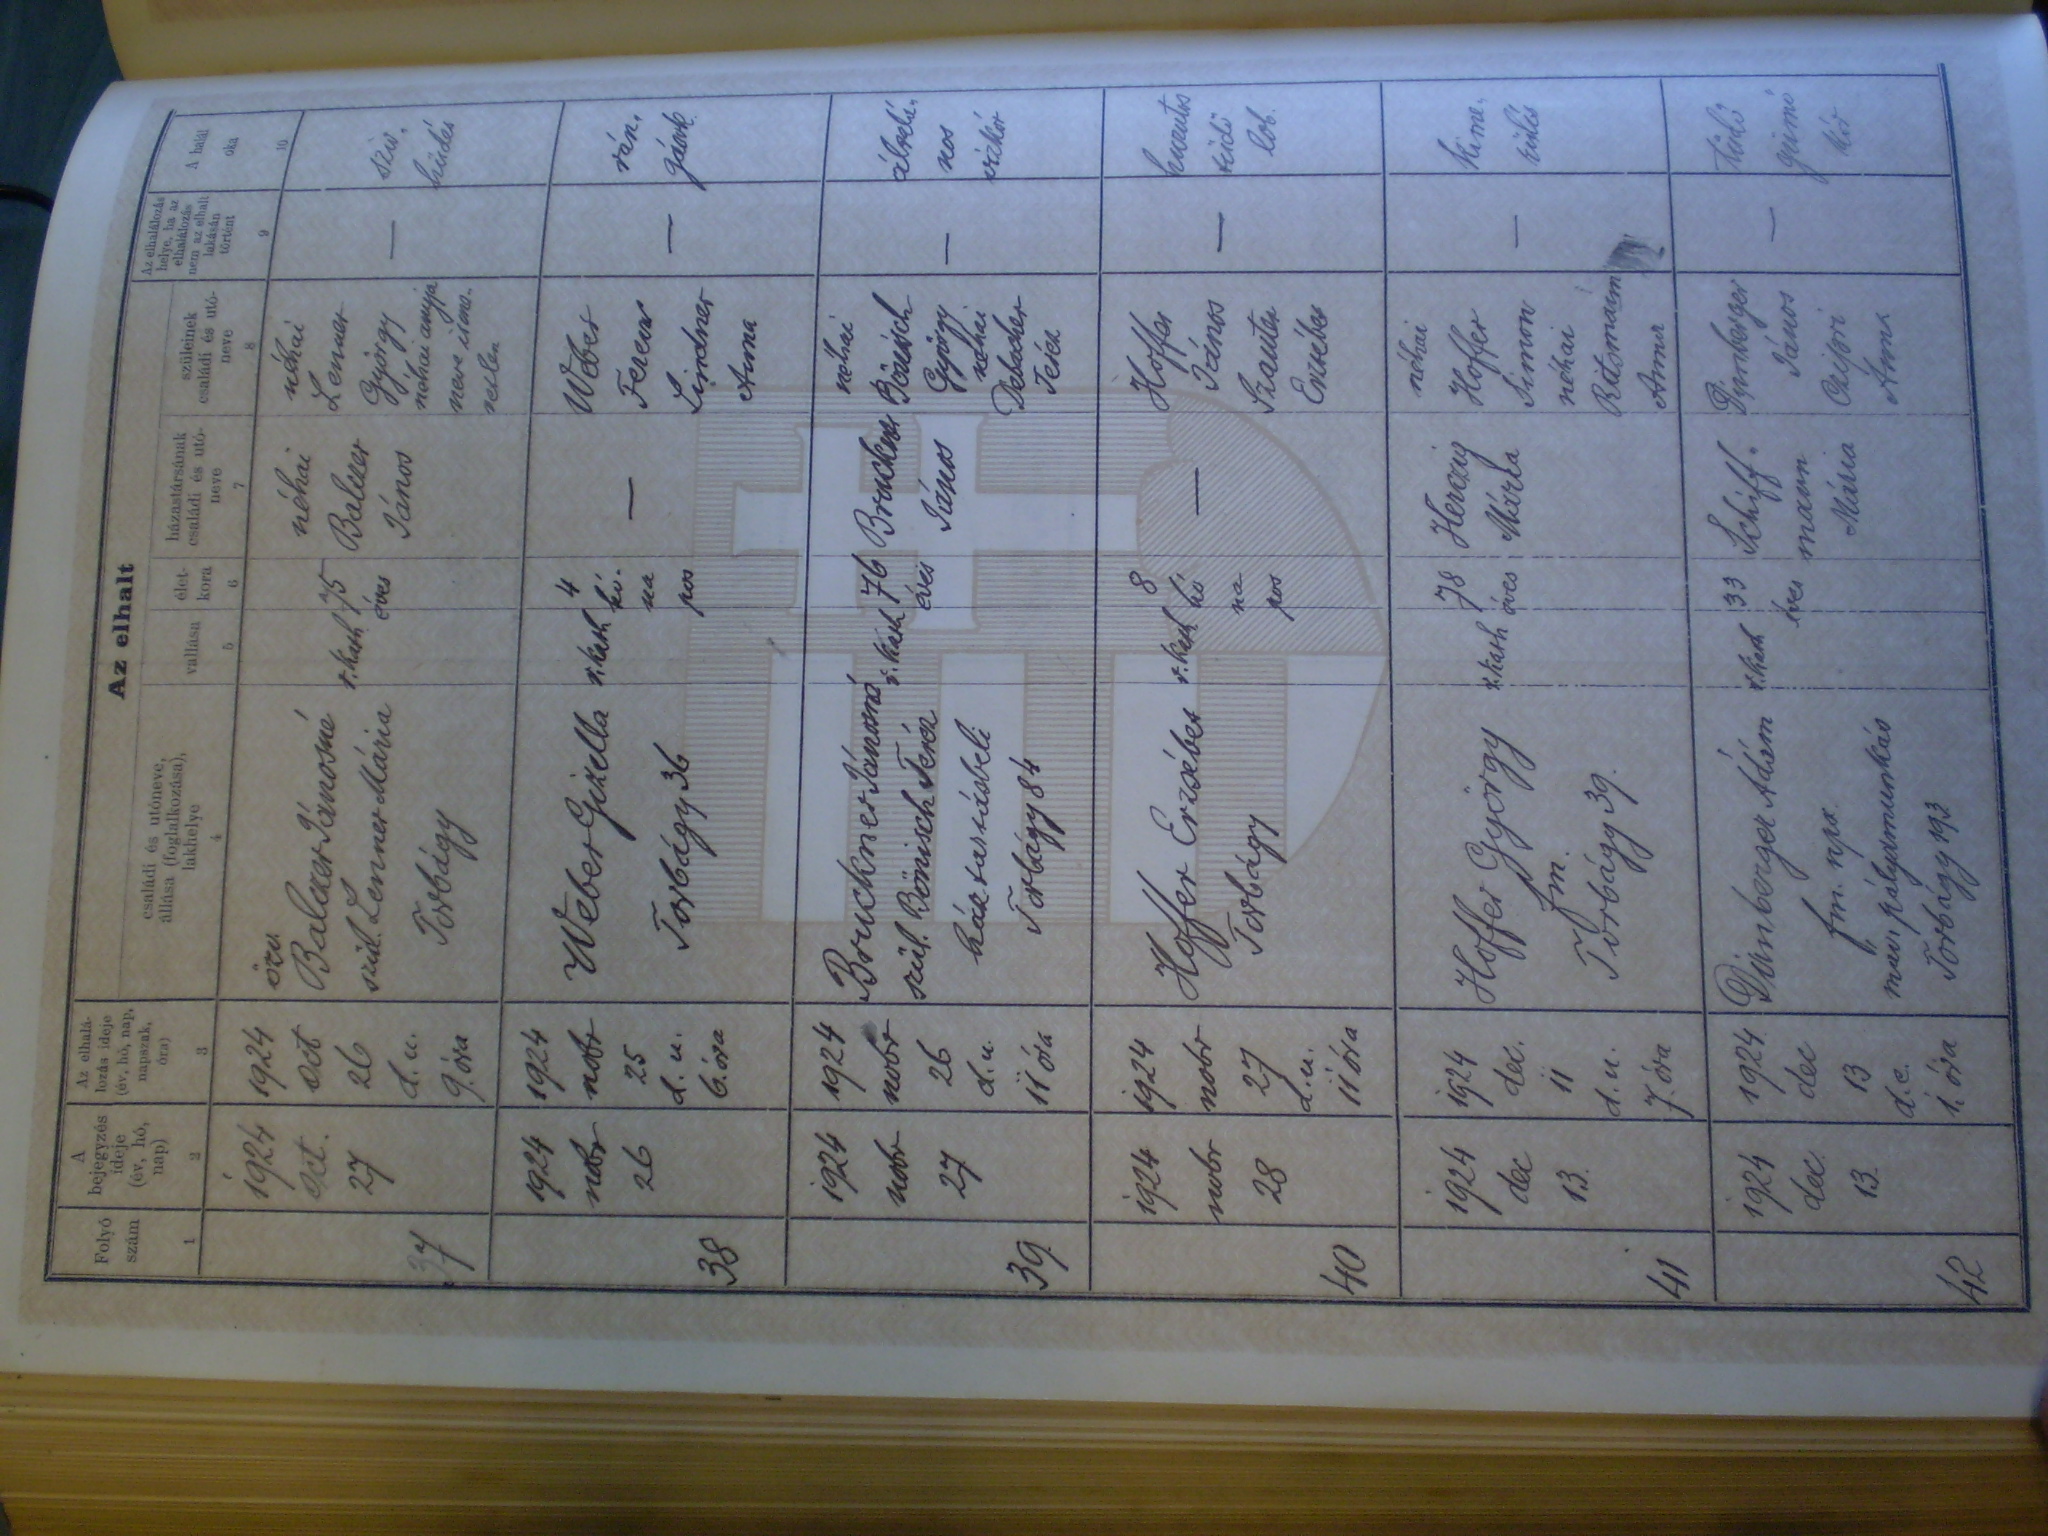 Az elhalt
Folyó
szám
A
bejegyzés
ideje
(év, hó,
nap)
Az elhalá-
lozás ideje
(év, hó, nap,
napszak,
óra)
családi és utóneve,
állása (foglalkozása),
lakhelye
vallása
élet-
kora
házastársának
családi és utó-
neve
szüleinek
családi és utó-
neve
Az elhalálozás
helye, ha az
elhalálozás
nem az elhalt
lakásán
történt
A halál
oka
1
2
3
4
5
6
7
8
9
10
37
1924
oct.
27
1924
oct
26
d. u.
9. óra
özv.
Balczer Jánosné
szül. Lenner Mária
Torbágy
r. kath
75
éves
néhai
Balczer
János
néhai
Lenner
György
néhai anyja
neve isme-
retlen
—
szív-
hüdés
38
1924
nobr
26
1924
nobr
25
d. u.
6. óra
Weber Gizella
Torbágy 36
r. kath
4
hó-
na
pos
—
Weber
Ferencz
Lindner
Anna
—
rán-
górcs
39
1924
nobr
27
1924
nobr
26
d. u.
11 óra
Bruckner Jánosné
szül. Bönisch Teréz
háztartásbeli
Torbágy 84
r. kath
76
éves
Bruckner
János
néhai
Bönisch
György
néhai
Teréz
—
40
1924
nobr
28
1924
nobr
27
d. u.
11 óra
Hoffer Erzsébet
Torbágy
r. kath
8
hó
na
pos
—
Hoffer
János
Szauter
Erzsébet
—
tüdő
lob.
41
1924
dec
13.
1924
dec.
11
d. u.
7. óra
Hoffer György
fm.
Torbágy 39.
r. kath
78
éves
Herczig
Mária
néhai
Hoffer
Simon
néhai
Anna
—
kime-
rülés
42
1924
dec.
13.
1924
dec
13
d. e.
1. óra
Dürnberger Ádám
fm. nps.
máv. pályamunkás
Torbágy 193
r. kath
33
éves
Schiff-
mann
Mária
Dürnberger
János
Czifori
Anna
—
tüdő
gümő
kór